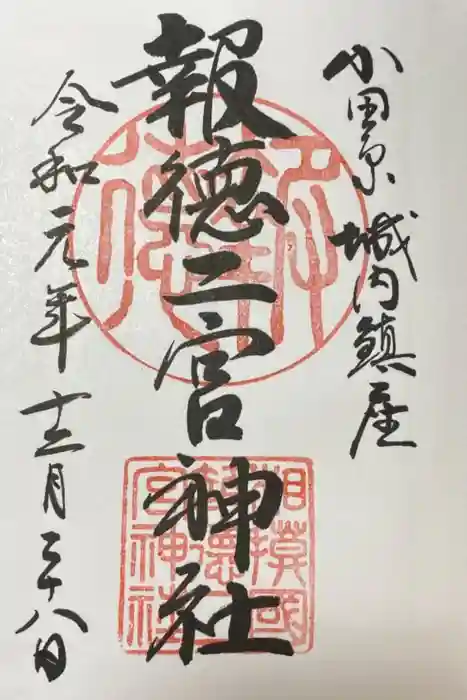 小田原城内鎮座
報徳二宮神社
令和元年十二月二十八日
相模國
報德二
宮神社